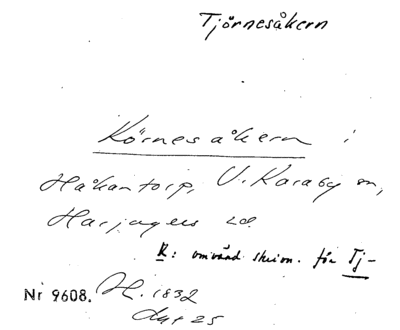 Tjörnesåkern
Körnesåkern i
Håkantorp, V. Karaby sn,
Harjagers hd.
K: omvänd skrivn. för Tj-
Nr 9608. H. 1832